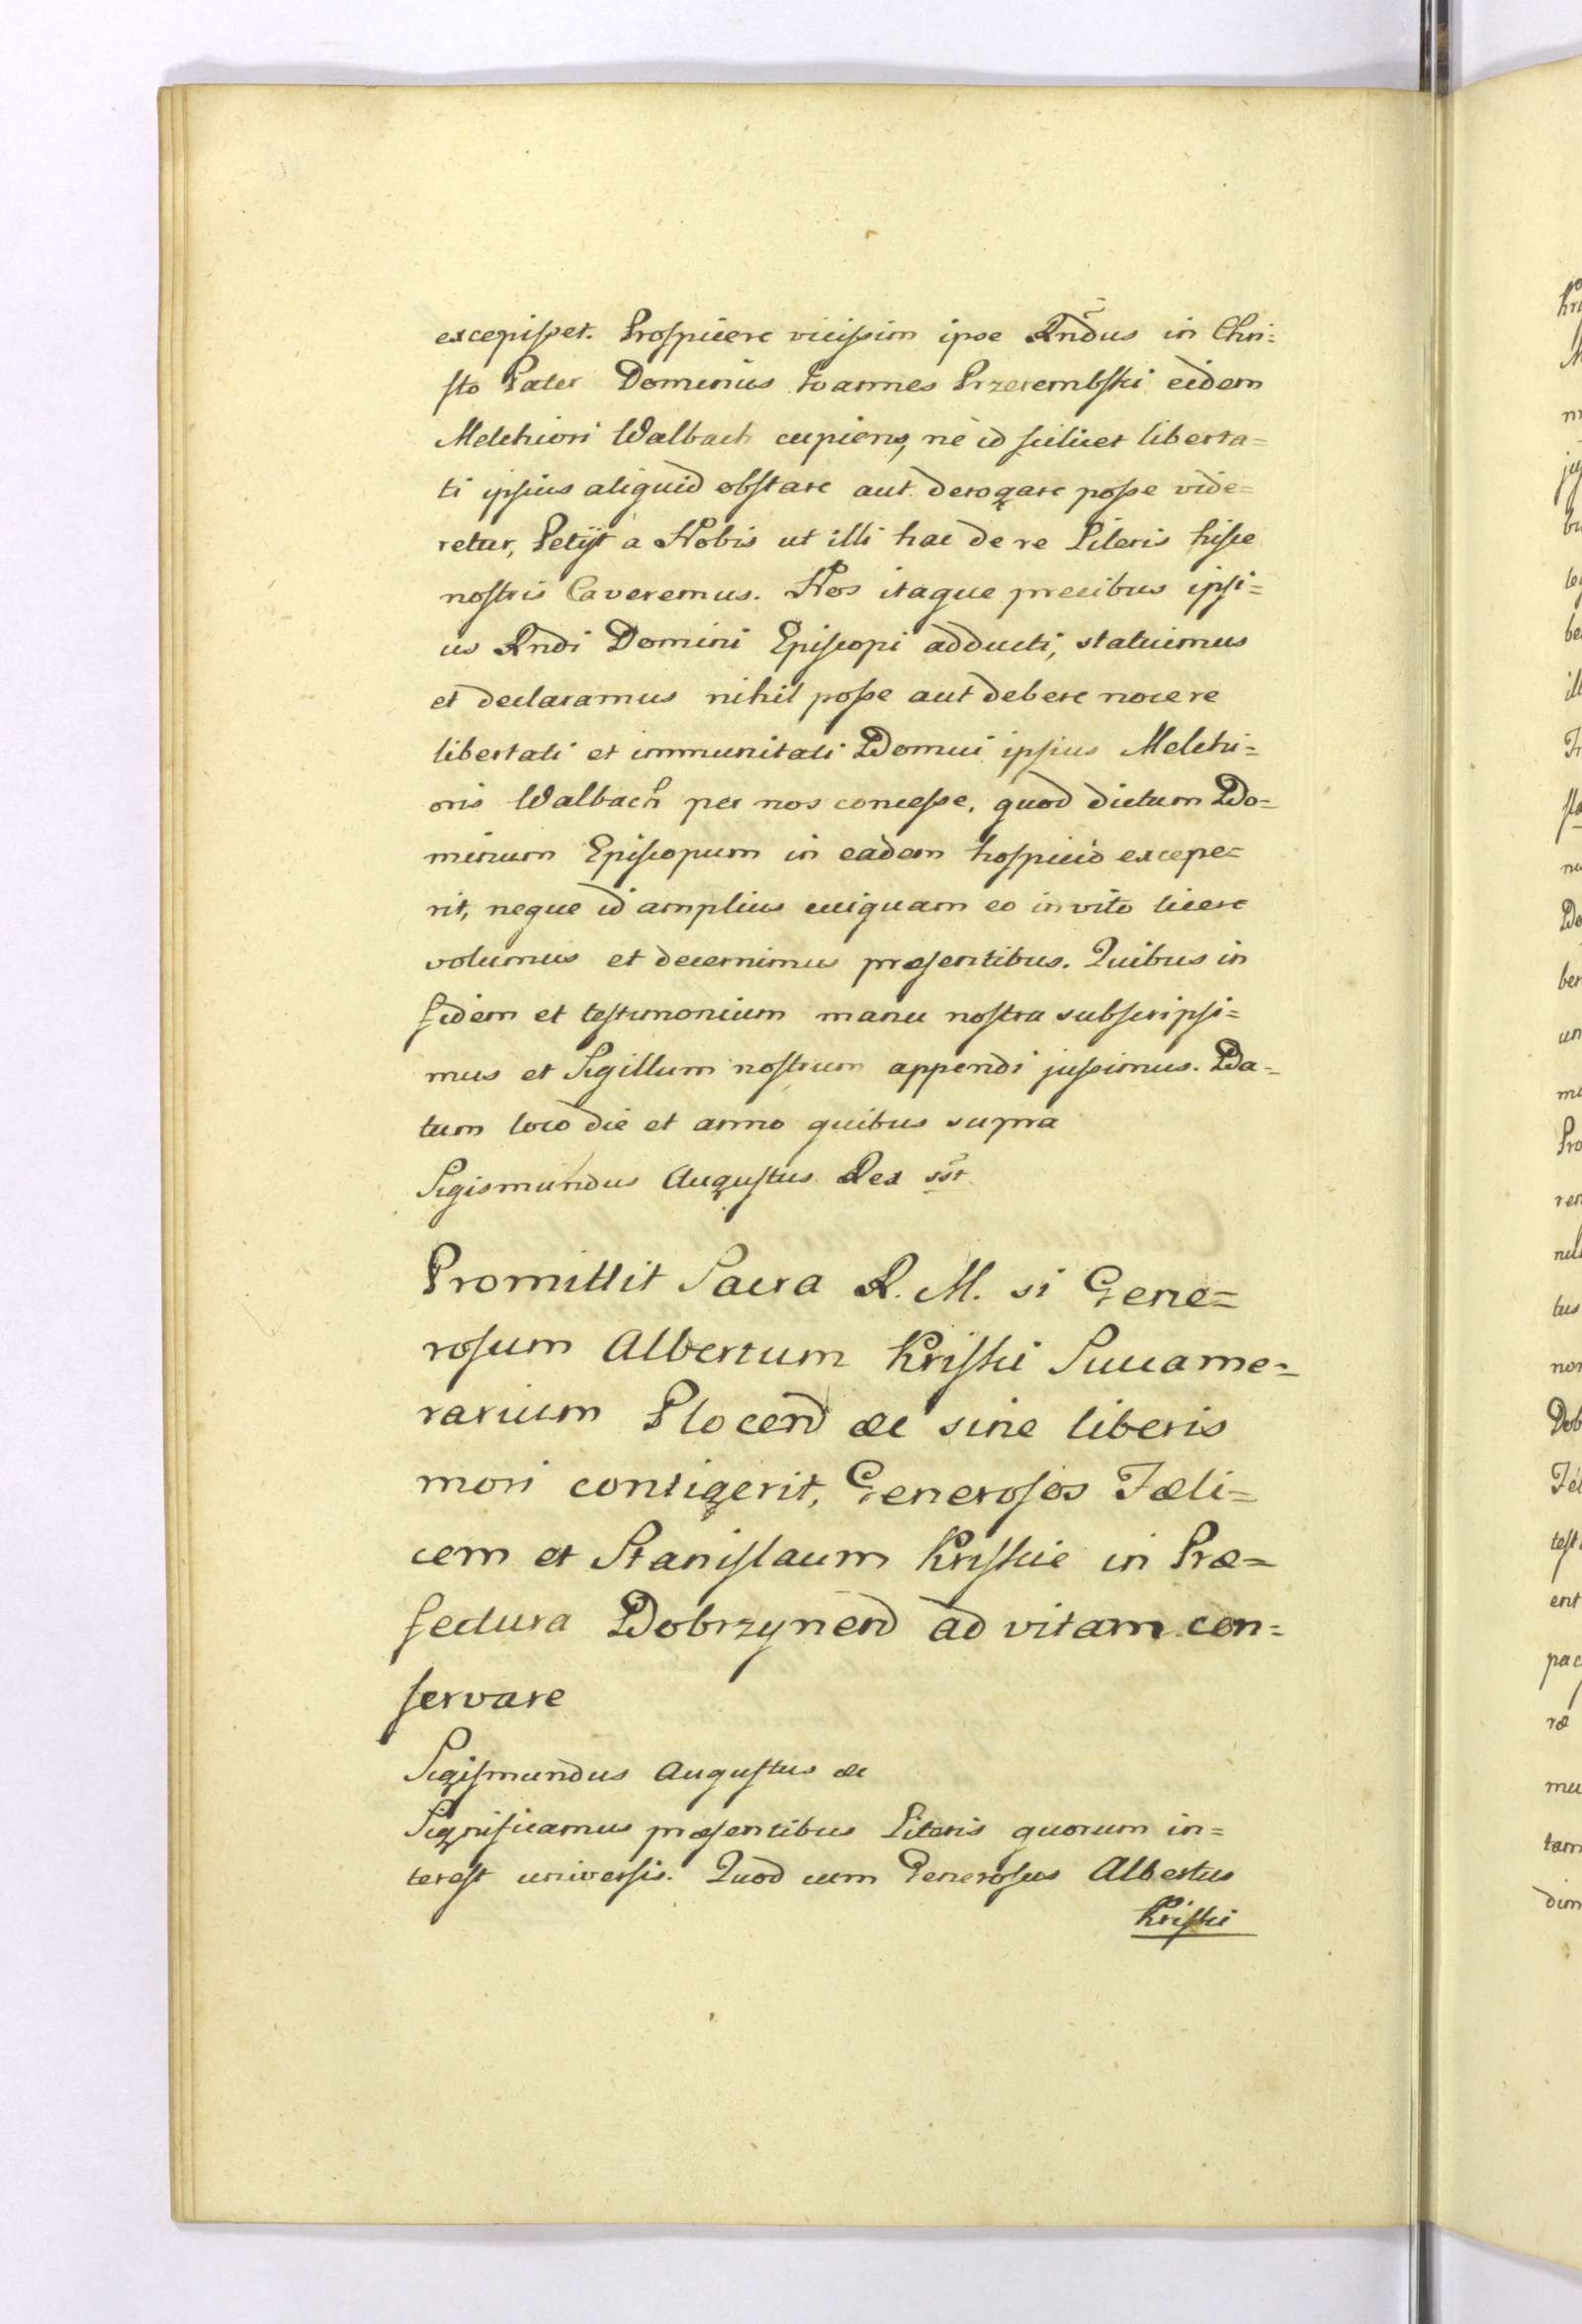 excepisset. Prospicere vicissim ipse Rndus in Chri=
sto Pater Dominus Joannes Przerembski eidem
Melchiori Walbach cupiens, ne id scilicet liberta=
ti ipsius aliquid obstare aut derogare posse vide=
retur, Petijt a Nobis ut illi hac de re Literis hisce
nostris Caveremus. Nos itaque precibus ipsi=
us Rndi Domini Episcopi adducti, statuimus
et declaramus nihil posse aut debere nocere
libertati et immunitati Domui ipsius Melchi=
oris Walbach per nos concesse, quod dictum Do=
minum Episcopum in eadem hospicio excepe=
rit, neque id amplius cuiquam eo invito licere
volumus et decernimus præsentibus. Quibus in
fidem et testimonium manu nostra subscripsi=
mus et Sigillum nostrum appendi jussimus. Da=
tum loco die et anno quibus supra
Sigismundus Augustus Rex sst
Promittit Sacra R. M. si Gene=
rosum Albertum Kriski Succame=
rarium Plocen̄ &c sine liberis
mori contigerit, Generosos Fæli=
cem et Stanislaum Kriskie in Præ=
fectura Dobrzynen̄ ad vitam con=
servare
Sigismundus Augustus &c
Significamus præsentibus Literis quorum in=
terest universis. Quod cum Generosus Albertus
Kriski